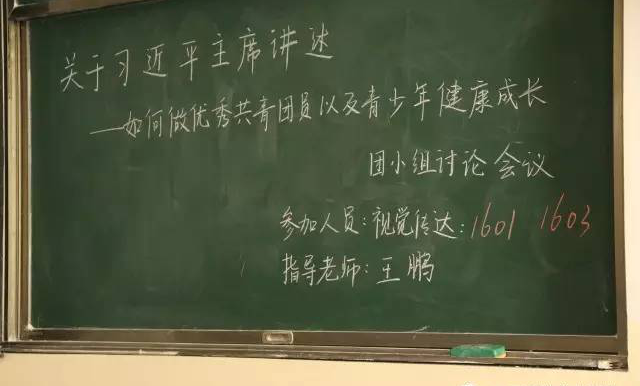 关于习近平主席讲述
——如何做优秀共青团员以及青少年健康成长
团小组讨论会议
参加人员：视觉传达：1601 1603
指导老师：王鹏